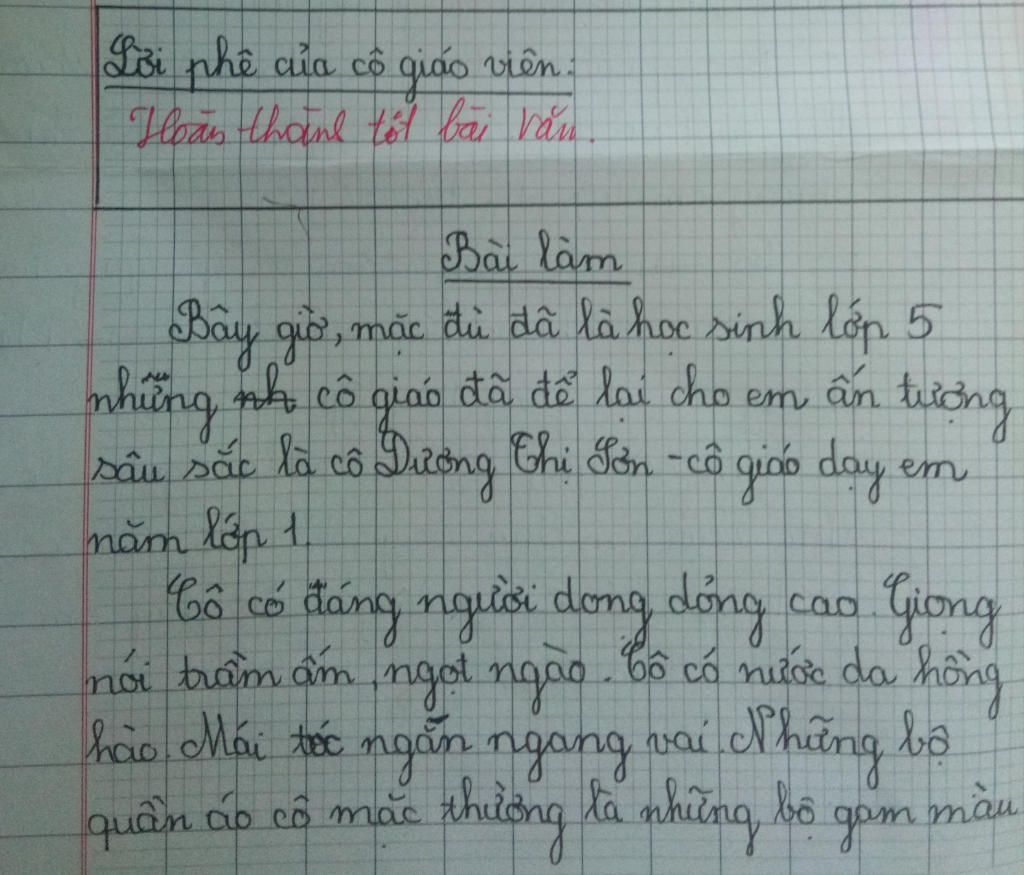 Lời phê của cô giáo viên:
Hoàn thành tốt bài văn.
Bài làm
Bây giờ, mặc đù dã là học sinh lớp 5
những nh cô giáo đã để lại cho em ấn tượng
sâu sắc là cô Dương Thị Sơn - cô giáo dạy em
năm lớp 1.
Cô có đáng người dong dỏng cao. Giọng
nói trầm ấm, ngọt ngào. Cô có nước da hồng
hào. Mái tóc ngắn ngang vai. Những bộ
quần áo cô mặc thường là những bộ gam màu